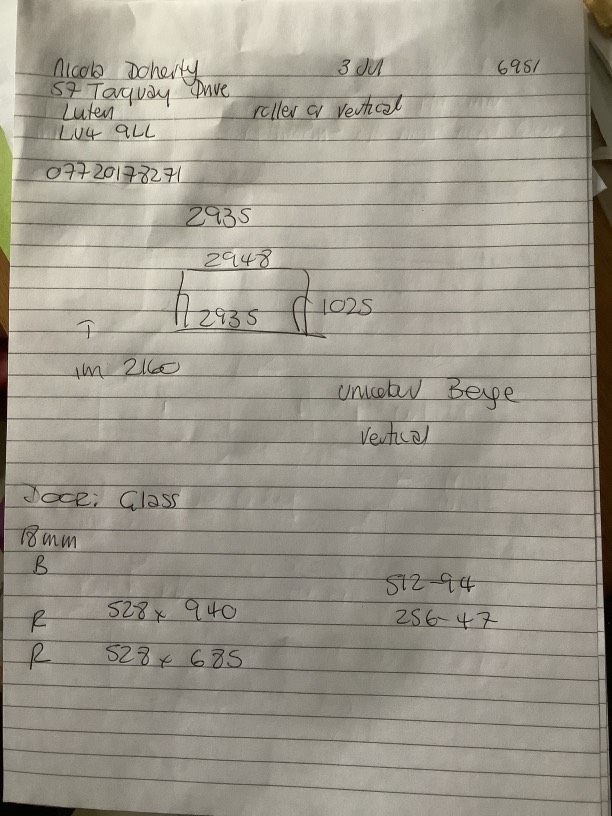 Nicola Doherty 3 Jul 6951
57 Torquay Drive
Luton
LU4 9LL roller or vertical
07720178271
2935
2948
2935 1025
T
1m 2160
unicolour Beige
vertical
Door: Glass
18mm
B
512-94
R 528 x 940 256-47
R 528 x 685